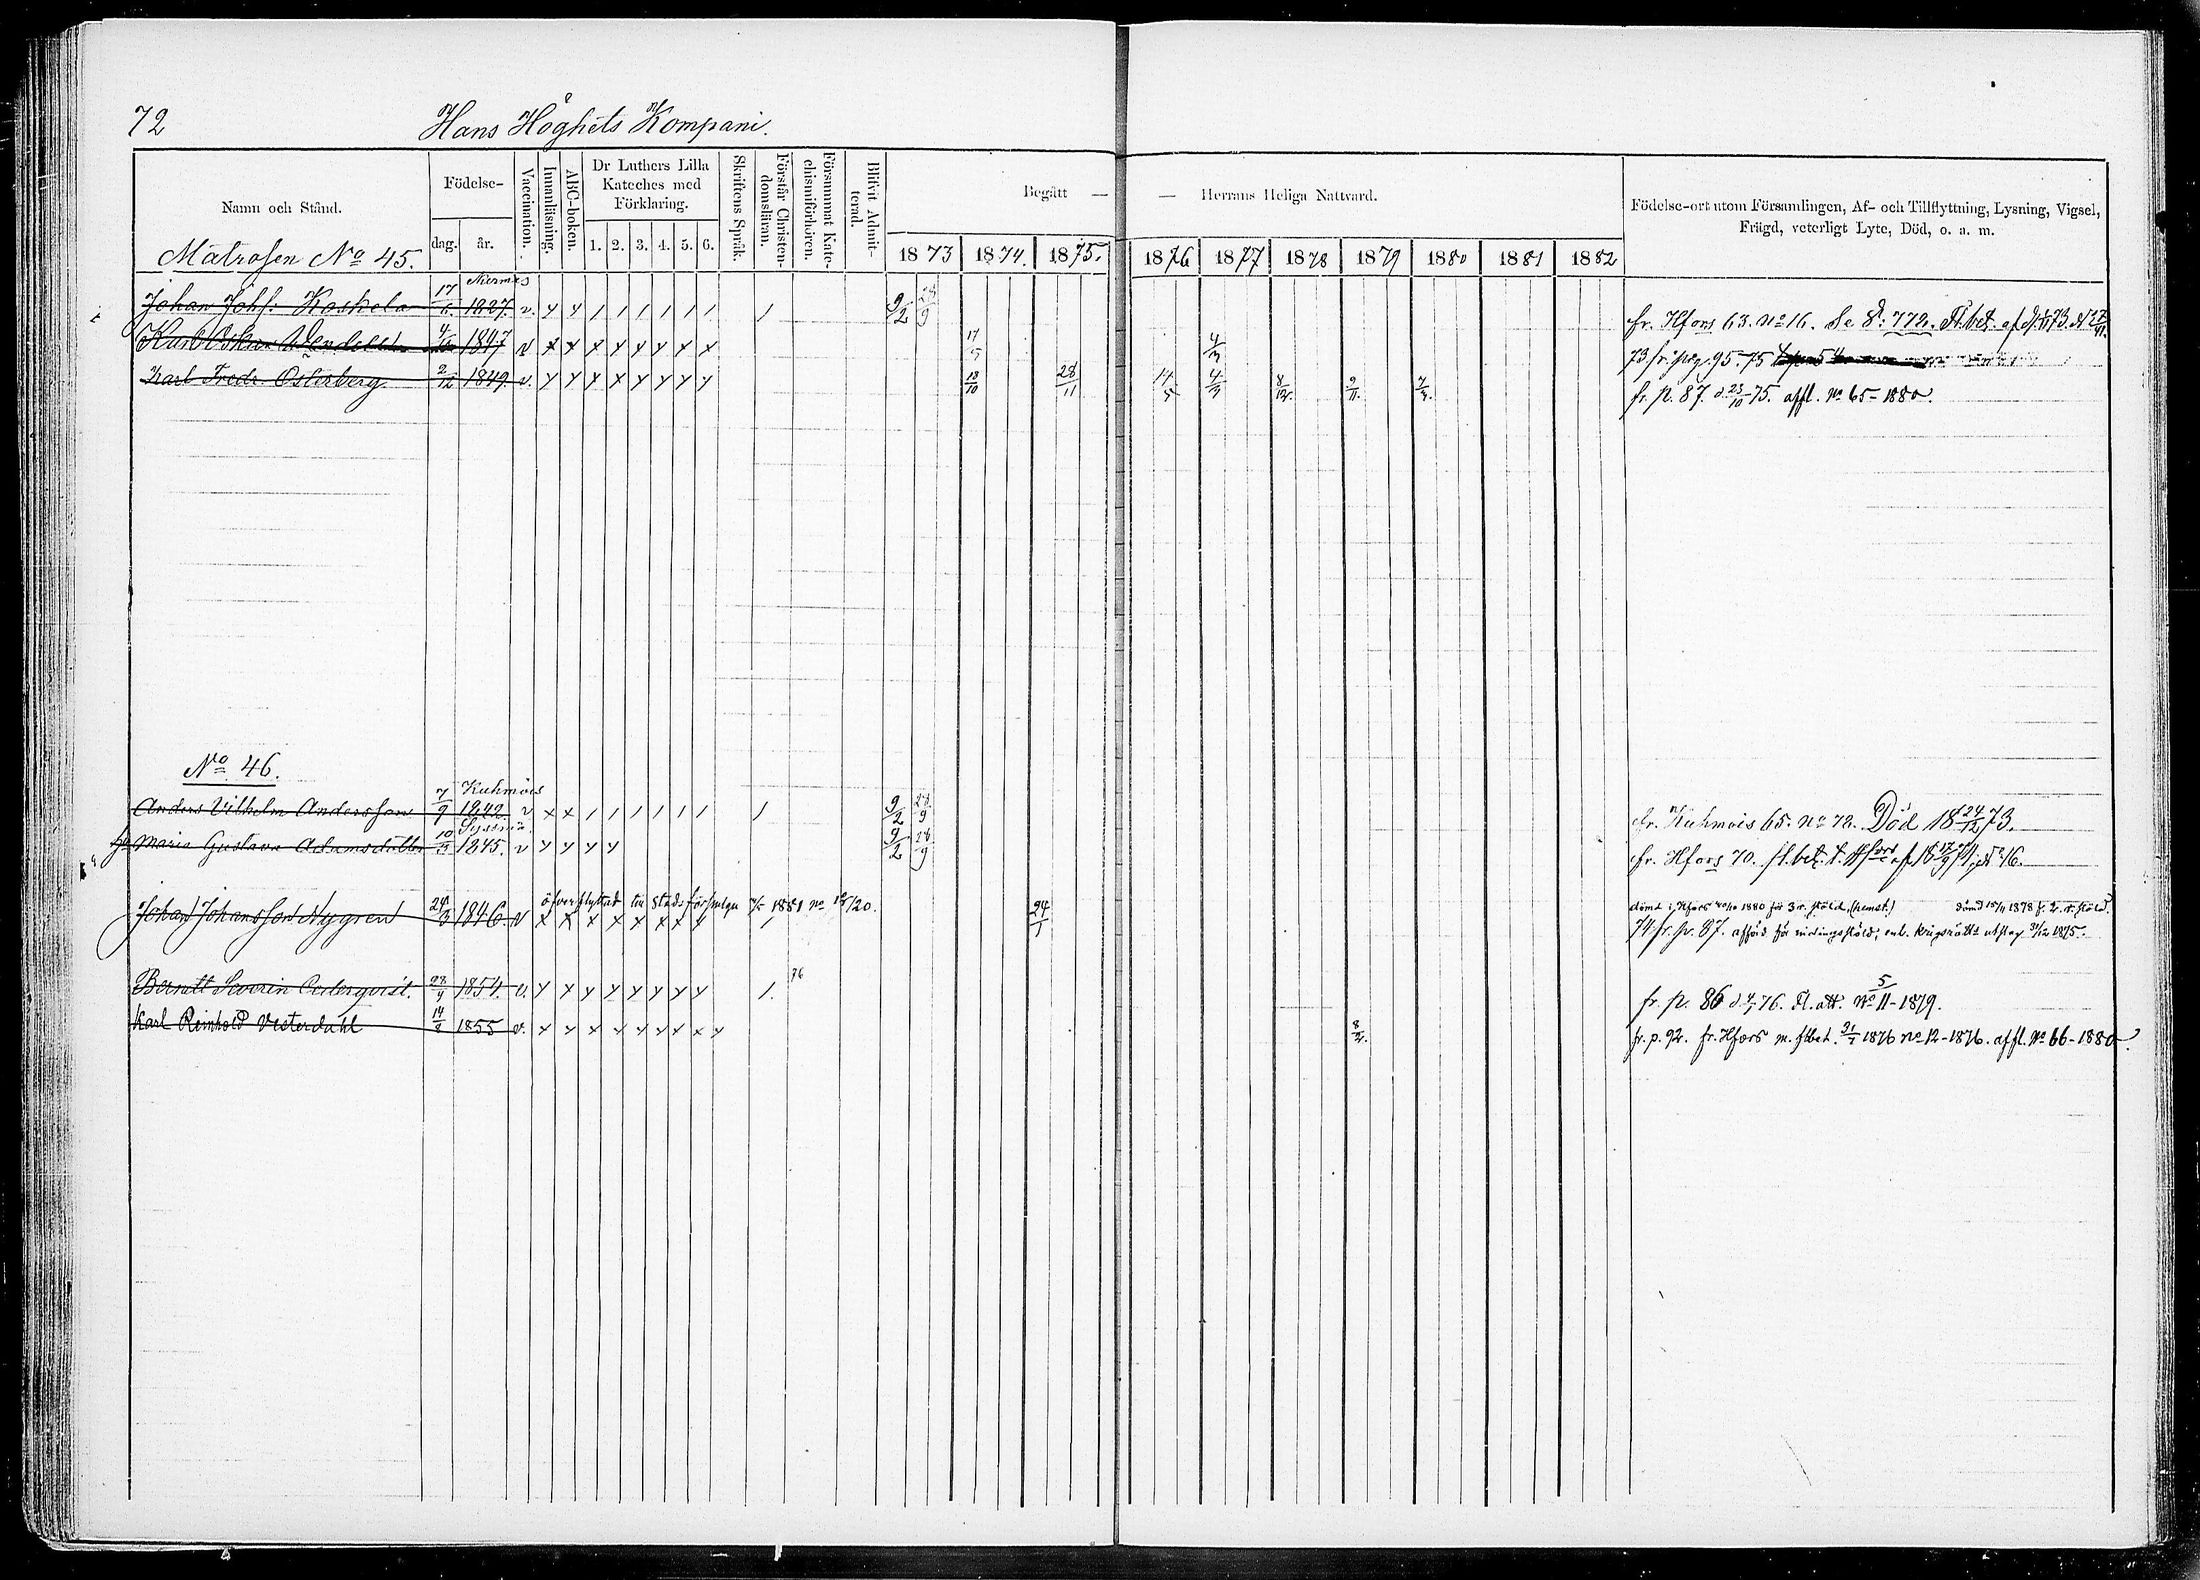 72
Hans Höghets Kompani.
Namn och Stånd.
Födelse-
dag.
år.
Vaccination.
Innanläsning.
ABC-boken.
Dr Luthers Lilla
Kateches med
Förklaring.
1. 2. 3. 4. 5. 6.
Skriftens Språk.
Förstår Christen-
domsläran.
Försummat Kate-
chismiförhören.
Blifvit Admit-
terad.
Begått —
— Herrans Heliga Nattvard.
Födelse-ort utom Församlingen, Af- och Tillflyttning, Lysning, Vigsel,
Frägd, veterligt Lyte, Död, o. a. m.
1873 1874. 1875. 1876 1877 1878 1879 1880 1881 1882
Matrosen No 45.
Johan Johs: Koskela 17/6 1827. v. 9/2 28/9 fr. Hfors 63. No 16. Se S: 772.
Karl Oskar 1847 v 17/5 4/3 73 fr. pag. 95. 75
Karl Fredr. Österberg 2/12 1849. v. 18/10 28/11 14/5 4/3 8/12. 9/11. 7/3. fr. p. 87. d. 23/10 75. affl. No 65-1880.
No 46.
Kuhmois
Anders Vilhelm Andersson 7/9 1842. v 9/2 28/9 fr. Kuhmois 65. No 72. Död 18 24/12 73.
Sysmä
Maria Gustava Adamsdotter 10/3 1845. v 9/2 28/9 fr. Hfors 70. fl.bet. t. Hfors af 18 17/9 74, No 16.
öfverflyttad 1881 No
dömd i Hfors 1880 för 3 r. stöld, dömd 1878 f. 2. r. stöld.
Johan Johansson Nygren 24/3 1846. v 24/1 74 fr. p. 87. enl. krigsrätts utslag 31/12 1875.
76
Berndt Severin Cederqvist. 28/4 1854. v. fr. p. 86 d 4/5 76. fl. att. 5/ No 11-1879.
Karl Reinhold Vesterdahl 14/8 1855 v. 8/12. fr. p. 92. fr. Hfors m. flbet. 31/7 1876 No 12-1876. affl. No 66-1880.